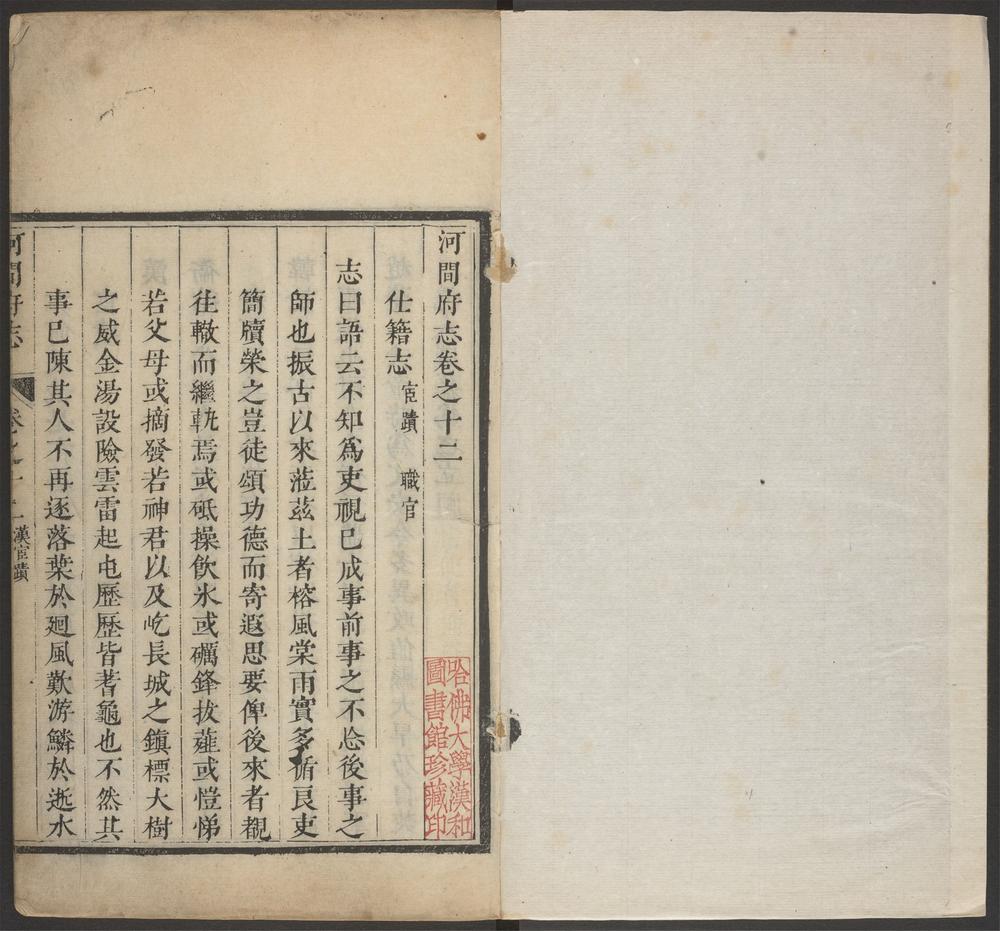 河間府志卷之十二
仕籍志 宦蹟 職官
志曰語云不知為吏視已成事前事之不忘後事之
師也振古以來蒞茲土者榕風棠雨實多循良吏
簡牘榮之豈徒頌功德而寄遐思要俾後來者覩
往轍而繼軌焉或砥操飲氷或礪鋒拔薤或愷悌
若父母或摘發若神君以及屹長城之鎮標大樹
之威金湯設險雲雷起屯歷歷皆蓍龜也不然其
事已陳其人不再逐落葉於廻風歎游鱗於逝水
河間府志 卷之十二 漢宦蹟
哈佛大學漢和
圖書館珍藏印